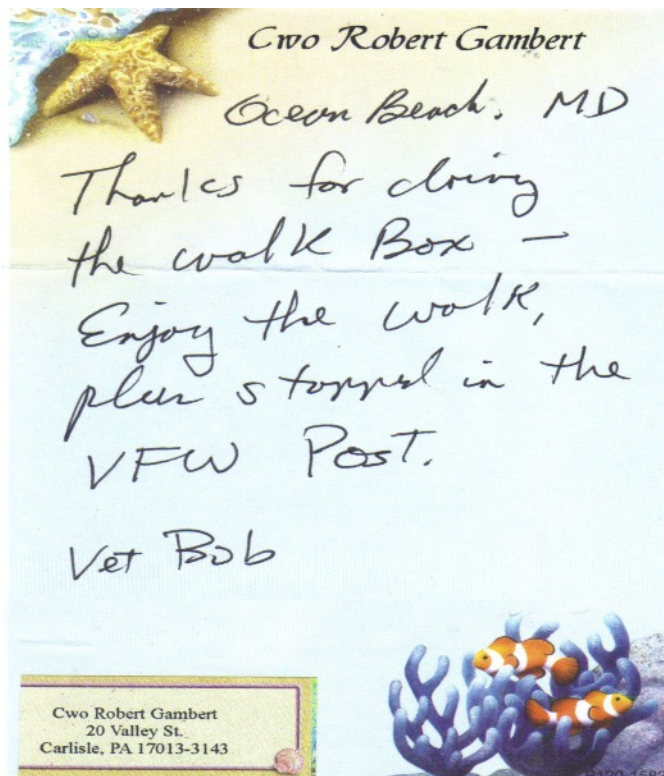 Cwo Robert Gambert
Ocean Beach, MD
Thanks for doing
the walk Box –
Enjoy the walk,
plus stopped in the
VFW Post.
Vet Bob
Cwo Robert Gambert
20 Valley St.
Carlisle, PA 17013-3143